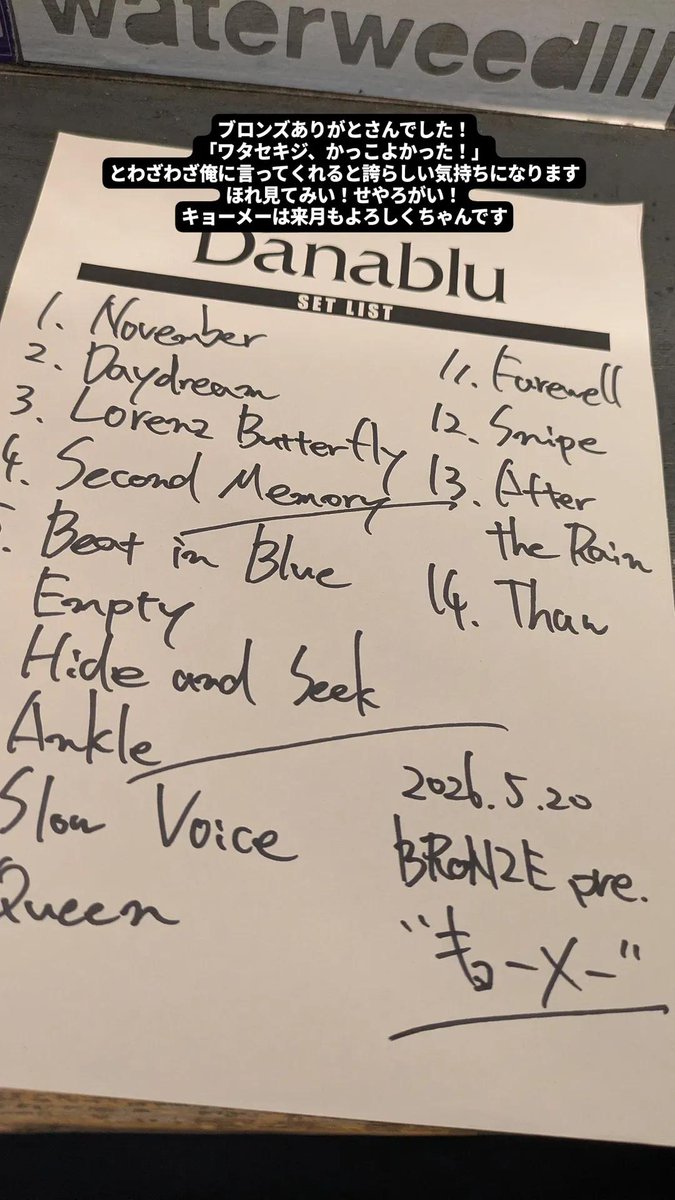 waterweed
ブロンズありがとさんでした！
「ワタセキジ、かっこよかった！」
とわざわざ俺に言ってくれると誇らしい気持ちになります
ほれ見てみい！せやろがい！
キョーメーは来月もよろしくちゃんです
Danablu
SET LIST
1. November
2. Daydream
3. Lorenz Butterfly
4. Second Memory
Beat in Blue
Empty
Hide and Seek
Ankle
Slow Voice
Queen
11. Farewell
12. Snipe
13. After
the Rain
14. Thaw
2026.5.20
BRONZE pre.
"キョーメー"